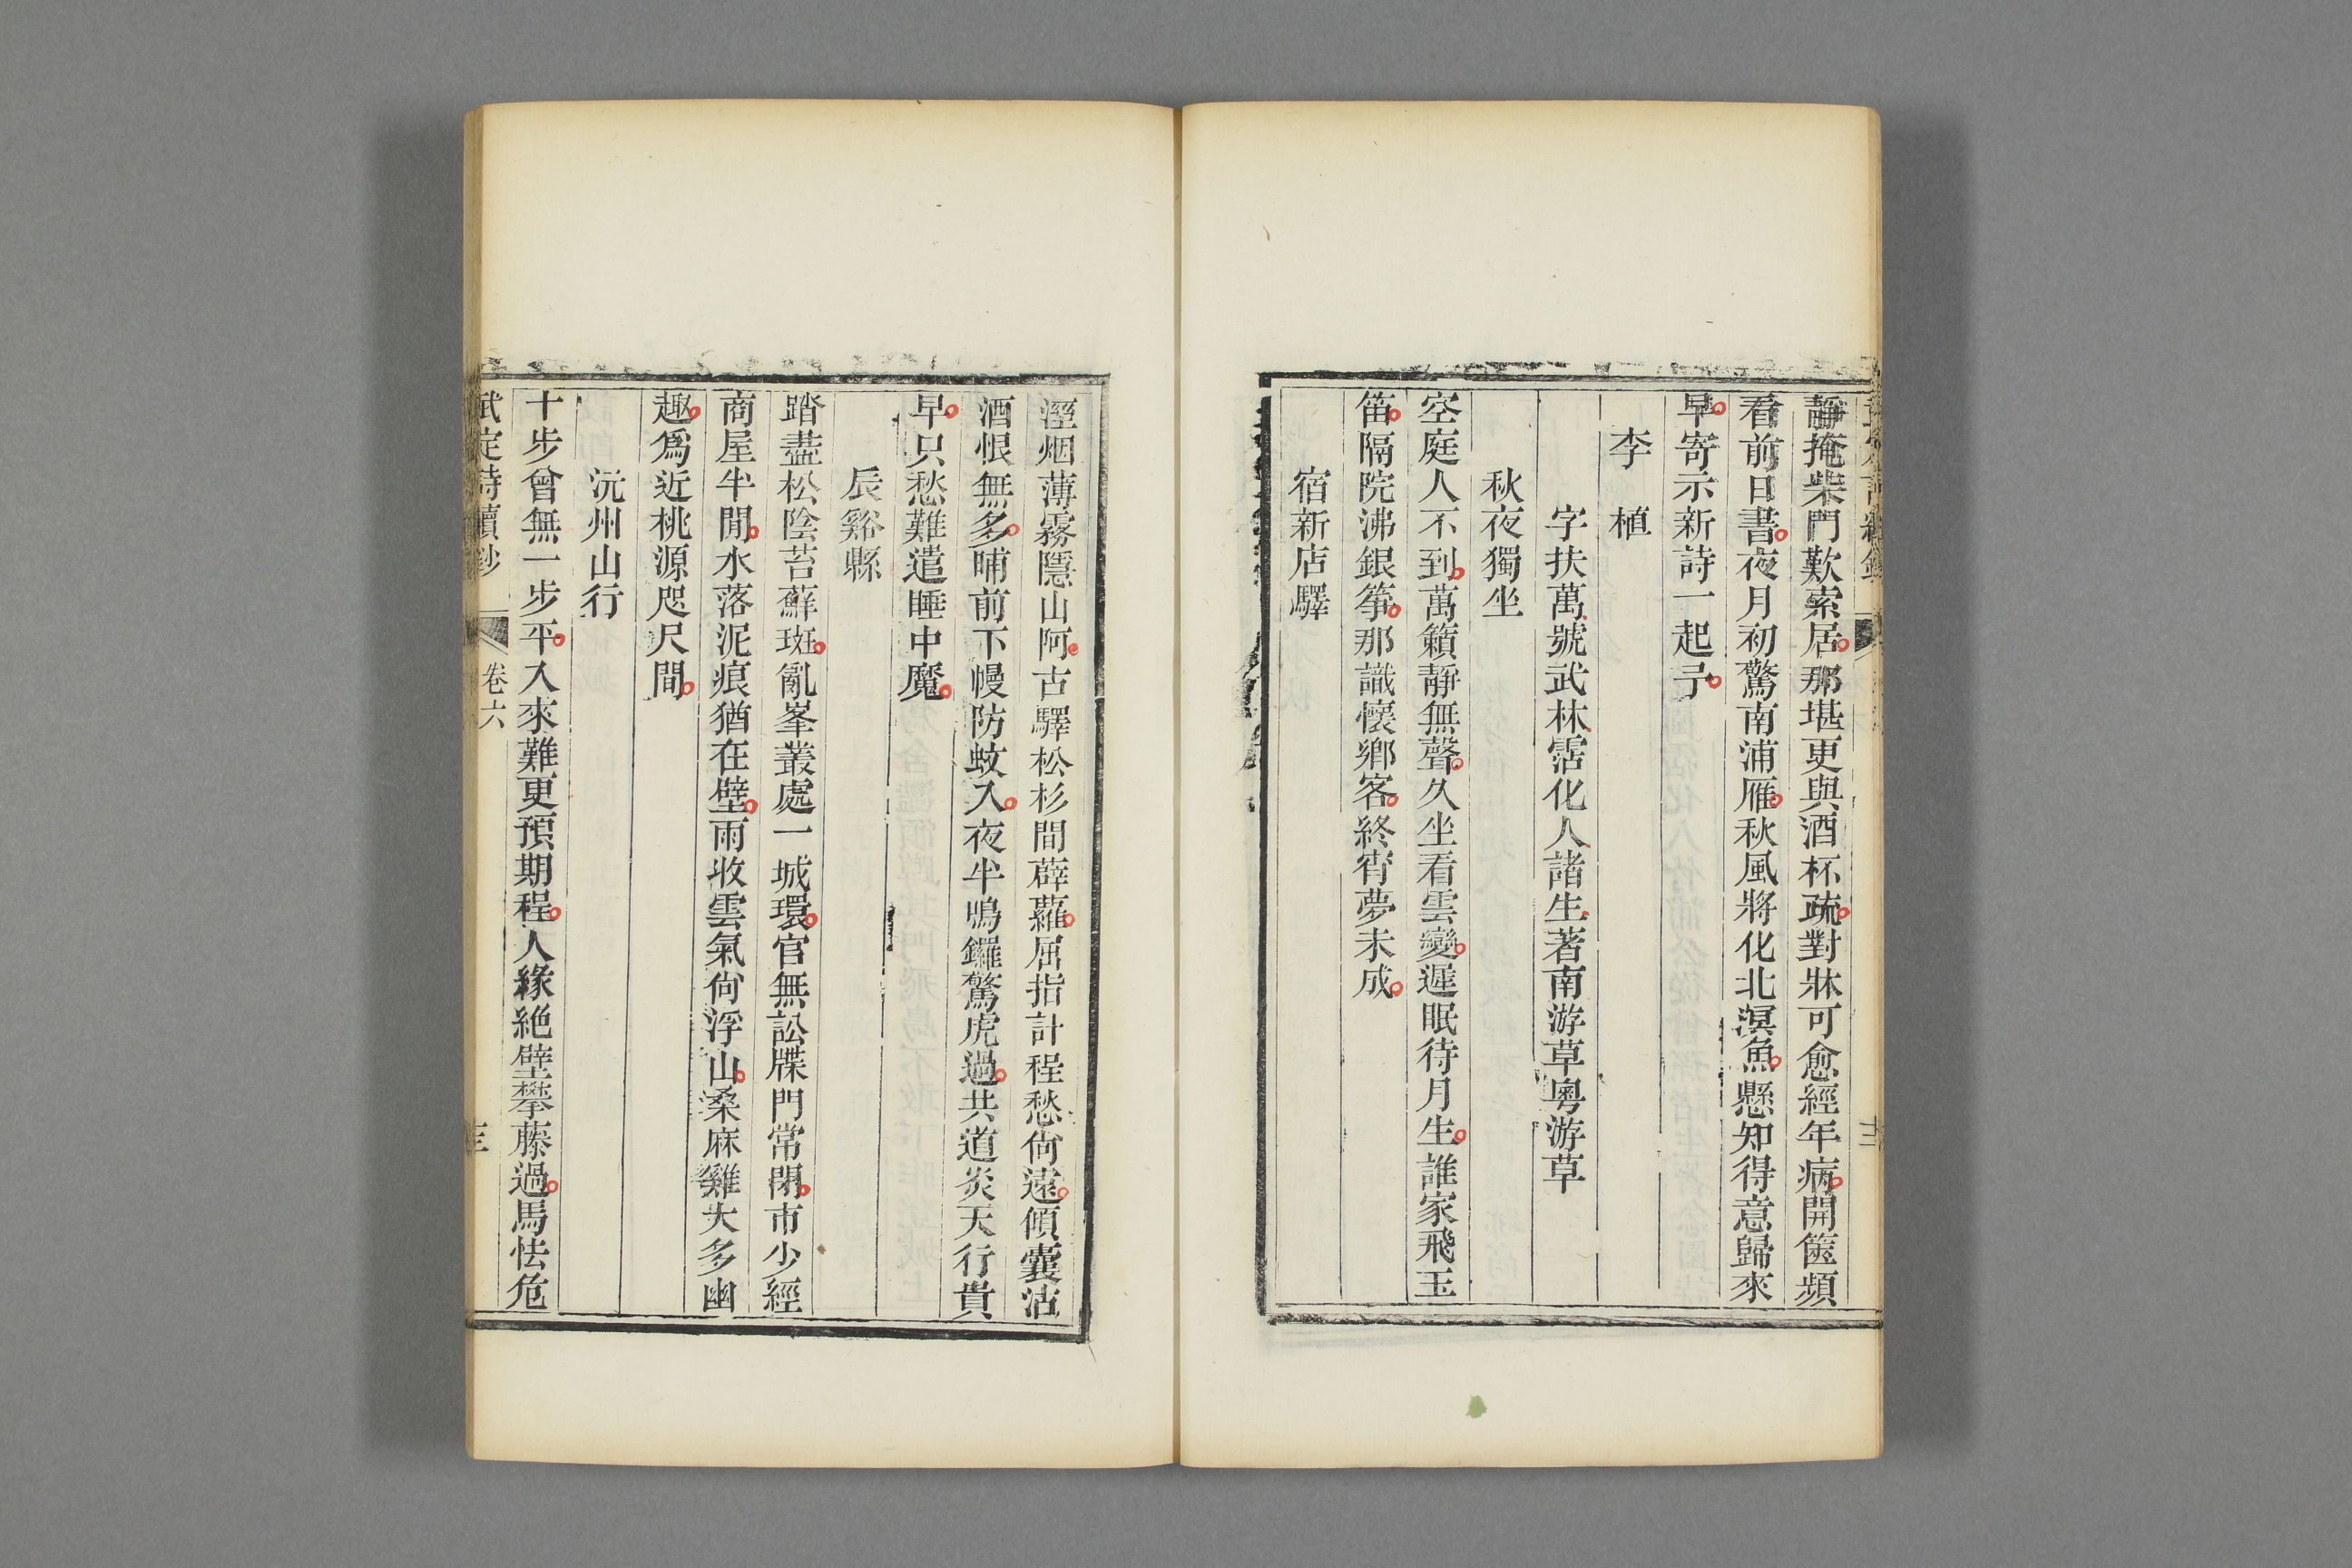 靜掩柴門歎索居那堪更與酒杯疏對牀可愈經年病開篋頻
看前日書夜月初驚南浦雁秋風將化北溟魚懸知得意歸來
早寄示新詩一起予
李植
字扶萬號武林霑化人諸生著南游草粵游草
秋夜獨坐
空庭人不到萬籟靜無聲久坐看雲變遲眠待月生誰家飛玉
笛隔院沸銀箏那識懷鄉客終宵夢未成
宿新店驛
溼烟薄霧隱山阿古驛松杉間薜蘿屈指計程愁尙遠傾囊沽
酒恨無多晡前下幔防蚊入夜半鳴鑼驚虎過共道炎天行貴
早只愁難遣睡中魔
辰谿縣
踏盡松陰苔蘚斑亂峯叢處一城環官無訟牒門常閉市少經
商屋半閒水落泥痕猶在壁雨收雲氣尙浮山桑麻雞犬多幽
趣爲近桃源咫尺間
沅州山行
十步曾無一步平入來難更預期程人緣絶壁攀藤過馬怯危
武定詩續鈔 卷六